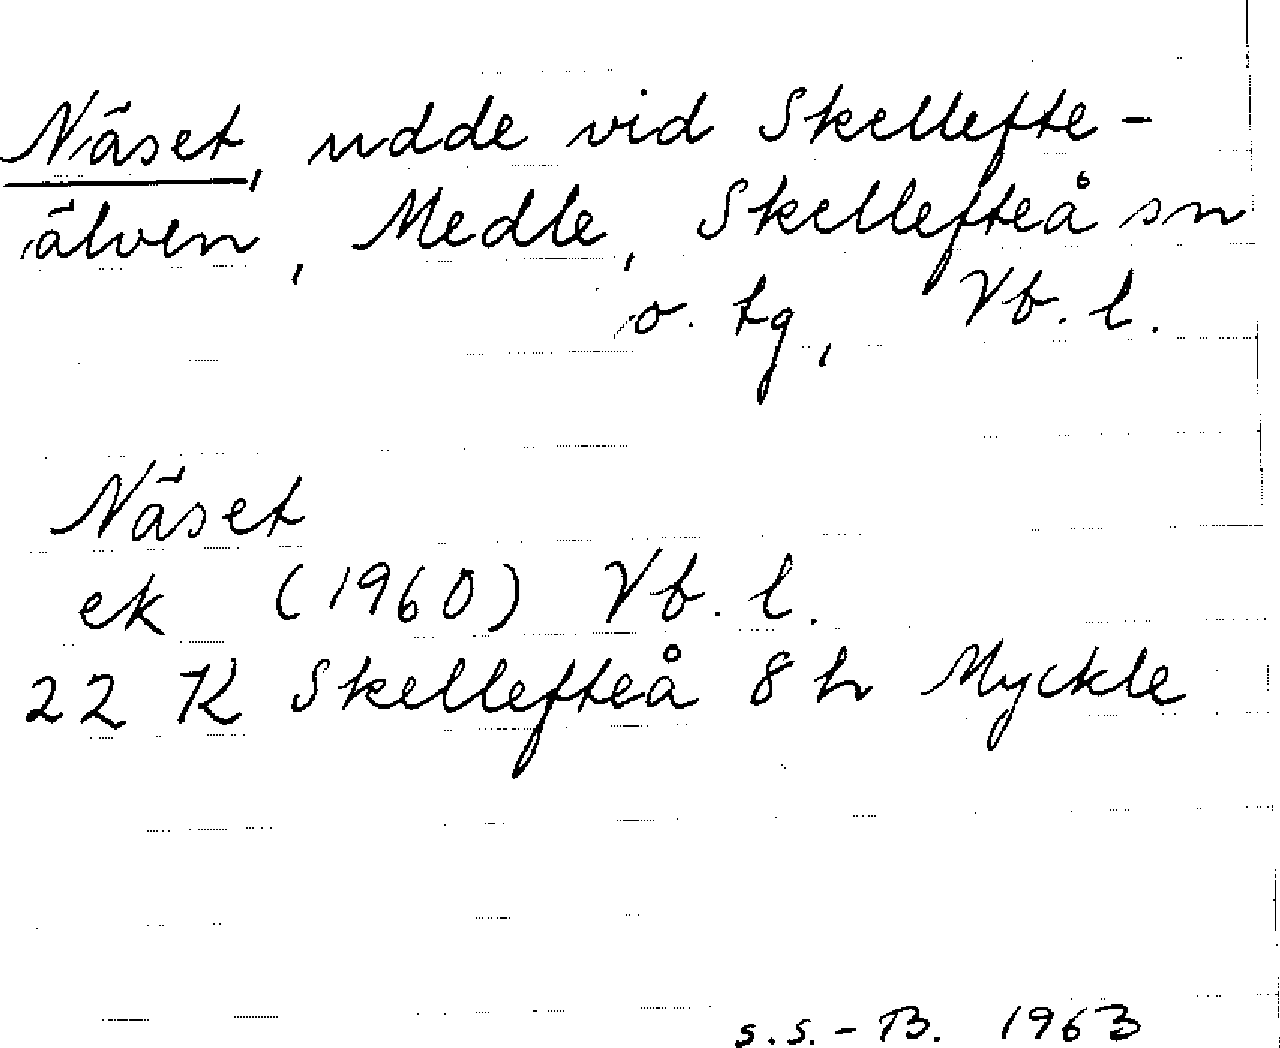 Näset, udde vid Skellefte-
älven, Medle, Skellefteå sn
o. tg, Vb. l.
Näset
ek (1960) Vb. l.
22 K Skellefteå 8 h Myckle
s.s.-B. 1963